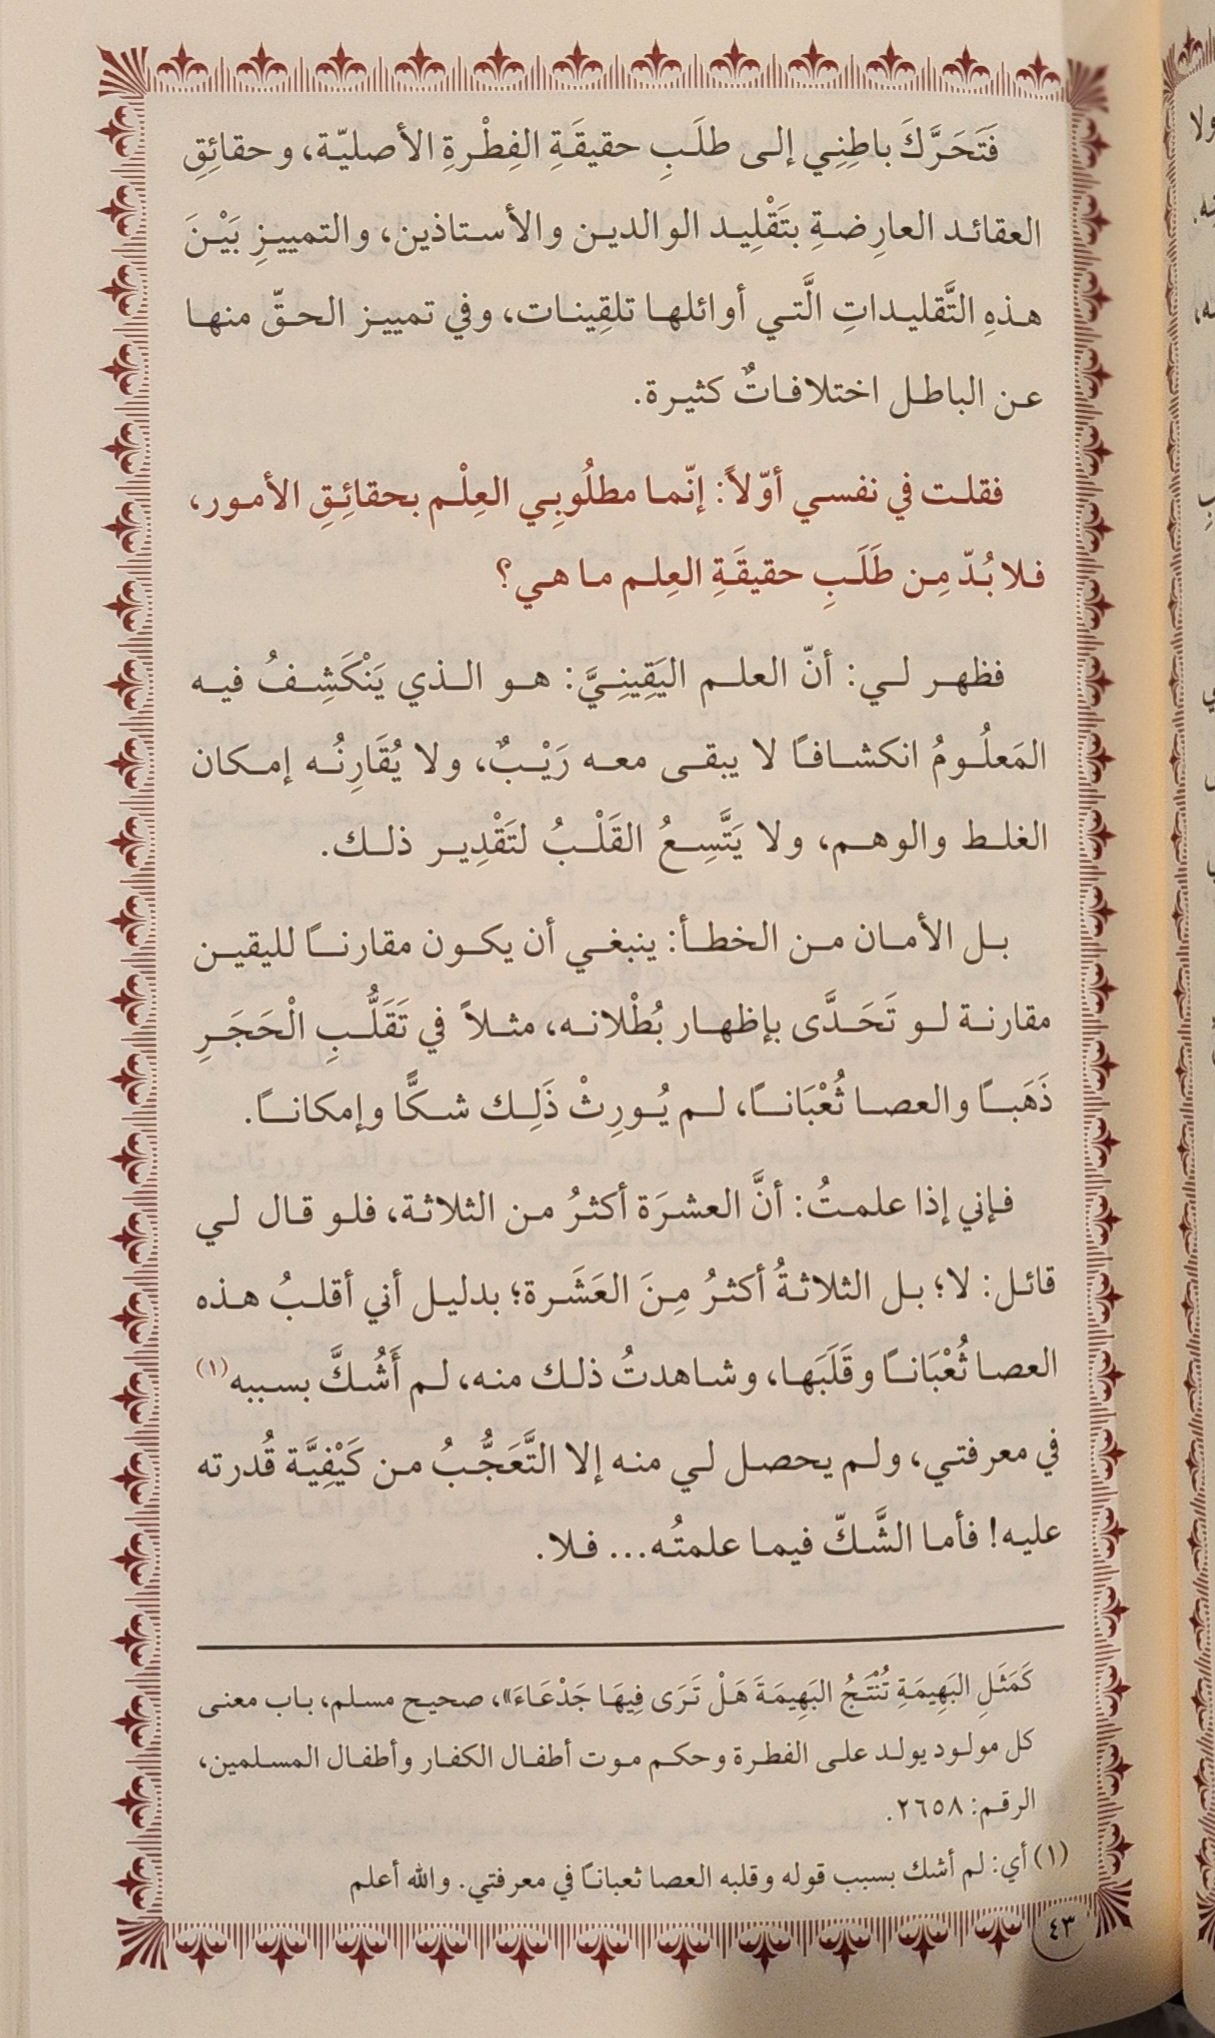 فَتَحَرَّكَ باطِنِي إلى طلَبِ حقيقَةِ الفِطْرةِ الأصليّة، وحقائِقِ
العقائد العارِضةِ بتَقْلِيد الوالدين والأستاذين، والتمييزِ بَيْنَ
هذهِ التَّقليداتِ الَّتي أوائلها تلقِينات، وفي تمييز الحقِّ منها
عن الباطل اختلافاتٌ كثيرة.
فقلت في نفسي أوّلاً: إنّما مطلُوبِي العِلْم بحقائِقِ الأمور،
فلا بُدّ مِن طَلَبِ حقيقَةِ العِلم ما هي؟
فظهر لي: أنّ العلم اليَقِينِيَّ: هو الذي يَنْكَشِفُ فيه
المَعلُومُ انكشافاً لا يبقى معه رَيْبٌ، ولا يُقَارِنُه إمكان
الغلط والوهم، ولا يَتَّسِعُ القَلْبُ لتَقْدِير ذلك.
بل الأمان من الخطأ: ينبغي أن يكون مقارناً لليقين
مقارنة لو تَحَدَّى بإظهار بُطْلانه، مثلاً في تَقَلُّبِ الْحَجَرِ
ذَهَباً والعصا ثُعْبَاناً، لم يُورِثْ ذَلِك شكًّا وإمكاناً.
فإني إذا علمتُ: أنَّ العشرَة أكثرُ من الثلاثة، فلو قال لي
قائل: لا؛ بل الثلاثةُ أكثرُ مِنَ العَشَرة؛ بدليل أني أقلبُ هذه
العصا ثُعْبَاناً وقَلَبَها، وشاهدتُ ذلك منه، لم أَشُكَّ بسببه(١)
في معرفتي، ولم يحصل لي منه إلا التَّعَجُّبُ من كَيْفِيَّة قُدرته
عليه! فأما الشَّكّ فيما علمتُه... فلا.
كَمَثَلِ البَهِيمَةِ تُنْتَجُ البَهِيمَةَ هَلْ تَرَى فِيهَا جَدْعَاءَ»، صحيح مسلم، باب معنى
كل مولود يولد على الفطرة وحكم موت أطفال الكفار وأطفال المسلمين،
الرقم: ٢٦٥٨.
(١) أي: لم أشك بسبب قوله وقلبه العصا ثعباناً في معرفتي. والله أعلم
٤٣